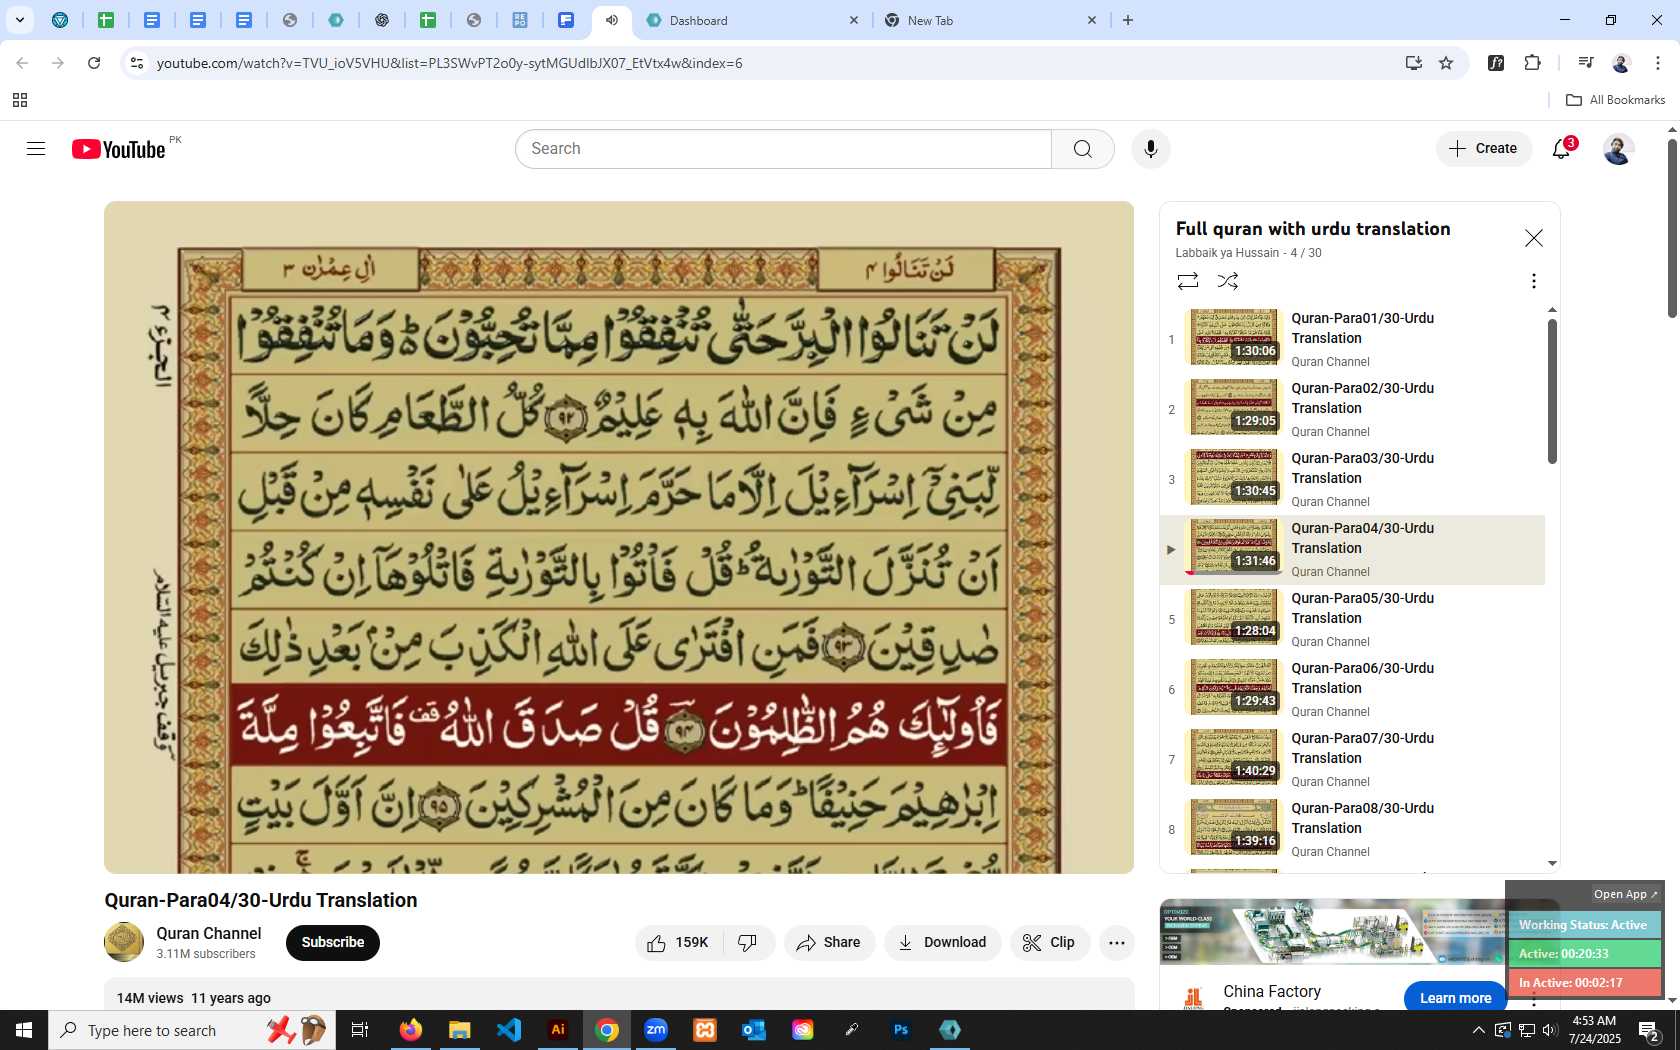 Dashboard
New Tab
youtube.com/watch?v=TVU_ioV5VHU&list=PL3SWvPT2o0y-sytMGUdlbJX07_EtVtx4w&index=6
All Bookmarks
YouTube PK
Search
Create
3
لَنْ تَنَالُوا ۴
اٰلِ عِمْرٰن ۳
لَنْ تَنَالُوا الْبِرَّ حَتّٰى تُنْفِقُوْا مِمَّا تُحِبُّوْنَ ؕ وَمَا تُنْفِقُوْا
مِنْ شَیْءٍ فَاِنَّ اللّٰهَ بِهٖ عَلِیْمٌ ۹۲ كُلُّ الطَّعَامِ كَانَ حِلًّا
لِّبَنِیْۤ اِسْرَآءِیْلَ اِلَّا مَا حَرَّمَ اِسْرَآءِیْلُ عَلٰى نَفْسِهٖ مِنْ قَبْلِ
اَنْ تُنَزَّلَ التَّوْرٰىةُ ؕ قُلْ فَاْتُوْا بِالتَّوْرٰىةِ فَاتْلُوْهَاۤ اِنْ كُنْتُمْ
صٰدِقِیْنَ ۹۳ فَمَنِ افْتَرٰى عَلَى اللّٰهِ الْكَذِبَ مِنْۢ بَعْدِ ذٰلِكَ
فَاُولٰٓىِٕكَ هُمُ الظّٰلِمُوْنَ ۹۴ قُلْ صَدَقَ اللّٰهُ قف فَاتَّبِعُوْا مِلَّةَ
اِبْرٰهِیْمَ حَنِیْفًا ؕ وَمَا كَانَ مِنَ الْمُشْرِكِیْنَ ۹۵ اِنَّ اَوَّلَ بَیْتٍ
الجزء ۴
وقف جبریل علیه السلام
Quran-Para04/30-Urdu Translation
Quran Channel
3.11M subscribers
Subscribe
159K
Share
Download
Clip
14M views 11 years ago
Full quran with urdu translation
Labbaik ya Hussain - 4 / 30
1
1:30:06
Quran-Para01/30-Urdu
Translation
Quran Channel
2
1:29:05
Quran-Para02/30-Urdu
Translation
Quran Channel
3
1:30:45
Quran-Para03/30-Urdu
Translation
Quran Channel
1:31:46
Quran-Para04/30-Urdu
Translation
Quran Channel
5
1:28:04
Quran-Para05/30-Urdu
Translation
Quran Channel
6
1:29:43
Quran-Para06/30-Urdu
Translation
Quran Channel
7
1:40:29
Quran-Para07/30-Urdu
Translation
Quran Channel
8
1:39:16
Quran-Para08/30-Urdu
Translation
Quran Channel
Open App
Working Status: Active
Active: 00:20:33
In Active: 00:02:17
OPTIMIZE
YOUR WORLD-CLASS
China Factory
Learn more
Type here to search
4:53 AM
7/24/2025
2